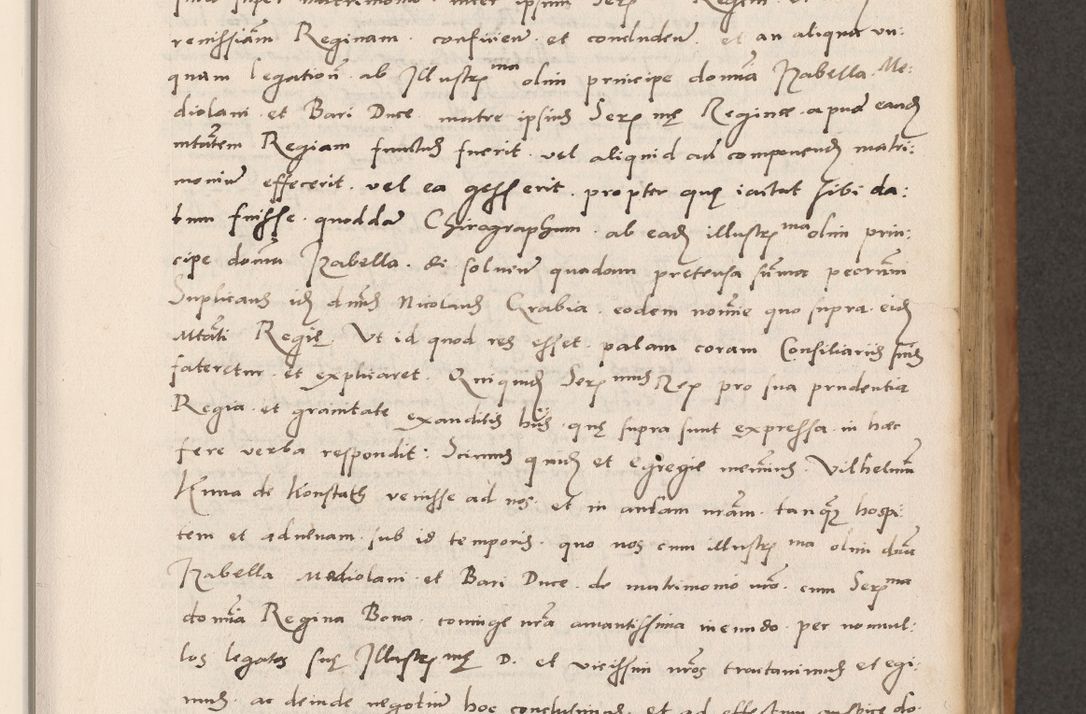 renissiam Reginam confitieñ et concludeñ et an aliqua un:
quam legationẽ ab Illustrma olim principe domina Isabella Me:
diolani et Bari Duce matre ipsius Sermę Reginæ apud eandẽ
mtatem Regiam functus fuerit vel aliquid ad componendũ matri:
monium effecerit vel ea gesserit propter quę iactat sibi da:
tum fuisse quoddam Chirographum ab eadẽ illustrma olim prin:
cipe domina Isabella de solvenda quadam pretensa summa pecuniarum
Suplicans idẽ dominus Nicolaus Grabia eodem nomine quo supra eidẽ
Mtati Regię Ut id quod res esset palam coram Consiliariis suis
fateretur et explicaret Quiquidẽ Sermus Rex pro sua prudentia
Regia et gravitate exauditis his quę supra sunt expressa in hæc
fere verba respondit: Scimus quidẽ et Egregie meminimus Vilhelmum
de Konstath venisse ad nos et in aulam nostram tanquam hospi
tem et advenam sub id temporis quo nos cum illustrma olim domina
Isabella Mediolani et Bari Duce de matrimonio nostro cum Serma
domina Regina Bona coniuge nostra amantissima ineundo per nonnul:
los legatos suę Illustrmę D. et vicissim nostros tractavimus et egi:
mus ac deinde negotium hoc conclusimus et ad effectum auspice do: